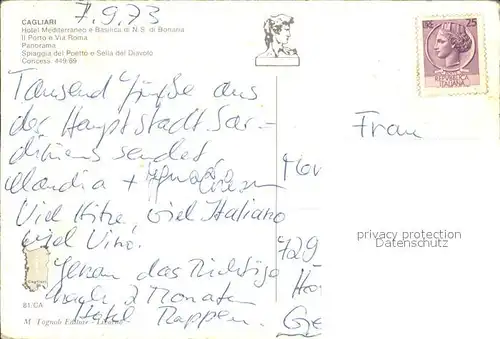 7.9.73
CAGLIARI
Hotel Mediterraneo e Basilica di N. S. di Bonaria
Il Porto e Via Roma
Panorama
Spiaggia del Poetto e Sella del Diavolo
Concess. 449/69
LIRE 25
REPUBBLICA
ITALIANA
Tausend Grüße aus
der Hauptstadt Sar-
diniens sendet
Claudia +
Viel Hitze, viel Italiano
viel Vino.
Genau das Richtige
nach 2 Monaten
Hotel Rappen.
Frau
729
privacy protection
Datenschutz
Cagliari
81/CA
M. Tognoli Editore - Livorno